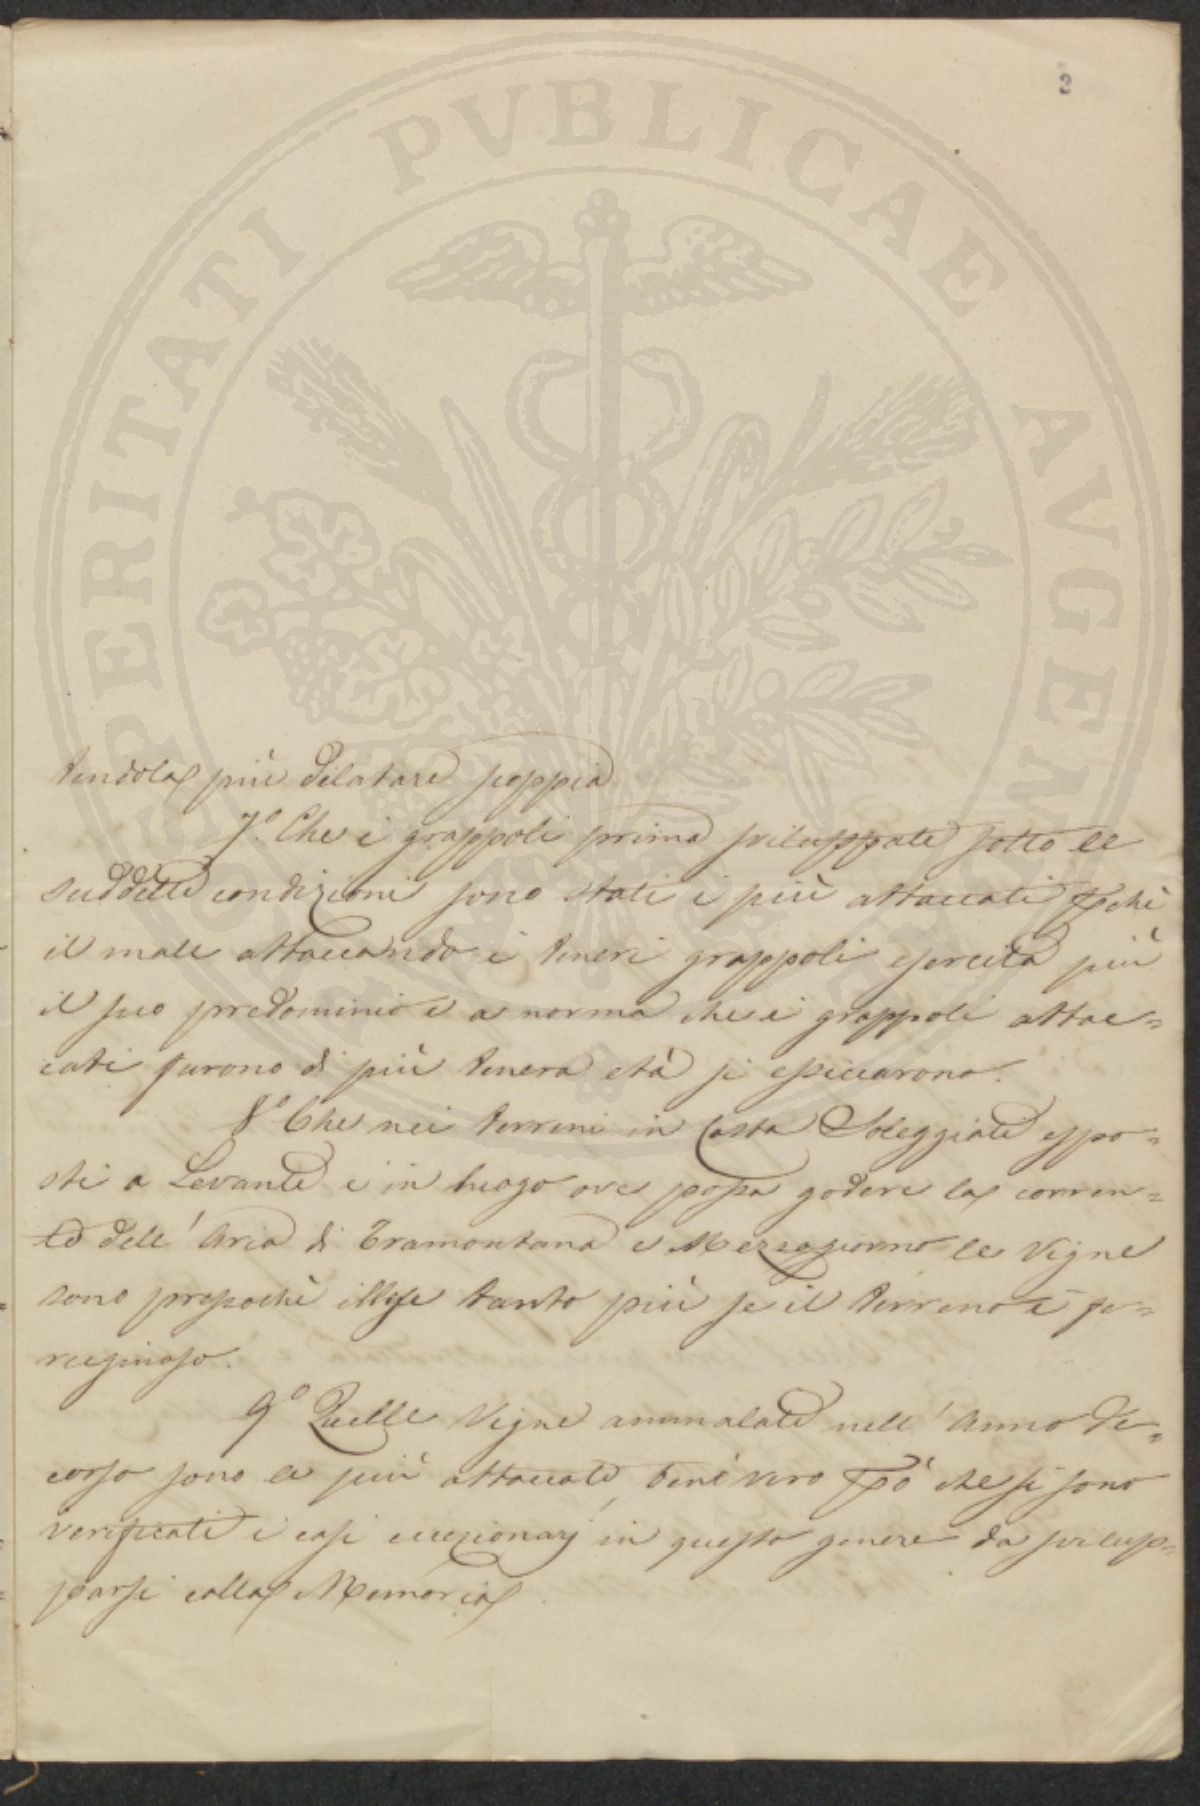 3
PROSPERITATI PVBLICAE AVGENDAE
tendola più dilatare scoppia
7.° Che i grappoli prima sviluppate sotto le
suddette condizioni sono stati i più attaccati pchè
il male attaccando i teneri grappoli esercita più
il suo predominio e a norma che i grappoli attac=
cati furono di più tenera età si essiccarono.
8.° Che nei terreni in Costa Soleggiate espo=
sti a Levante e in luogo ove possa godere la corren=
te dell'Aria di Tramontana e Mezzogiorno le Vigne
sono pressochè illese tanto più se il terreno è fe=
ruginoso.
9.° Quelle Vigne ammalate nell'Anno de=
corso sono le più attaccate, ben'è vero pò che si sono
verificati i casi eccezionarj in questo genere da svilup=
parsi colla Memoria.